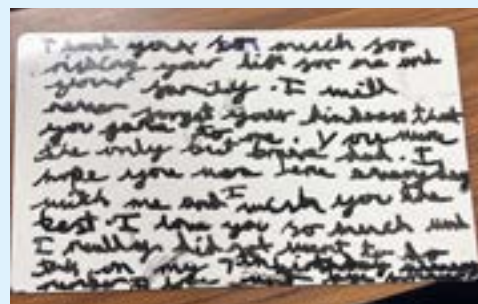 Thank you so much for
risking your life for me and
your family. I will
never forget your kindness that
you gave to me. You were
the only but brave kid. I
hope you were here everyday
with me and I wish you the
best. I love you so much and
I really did not want to do
this on my 7th birthday